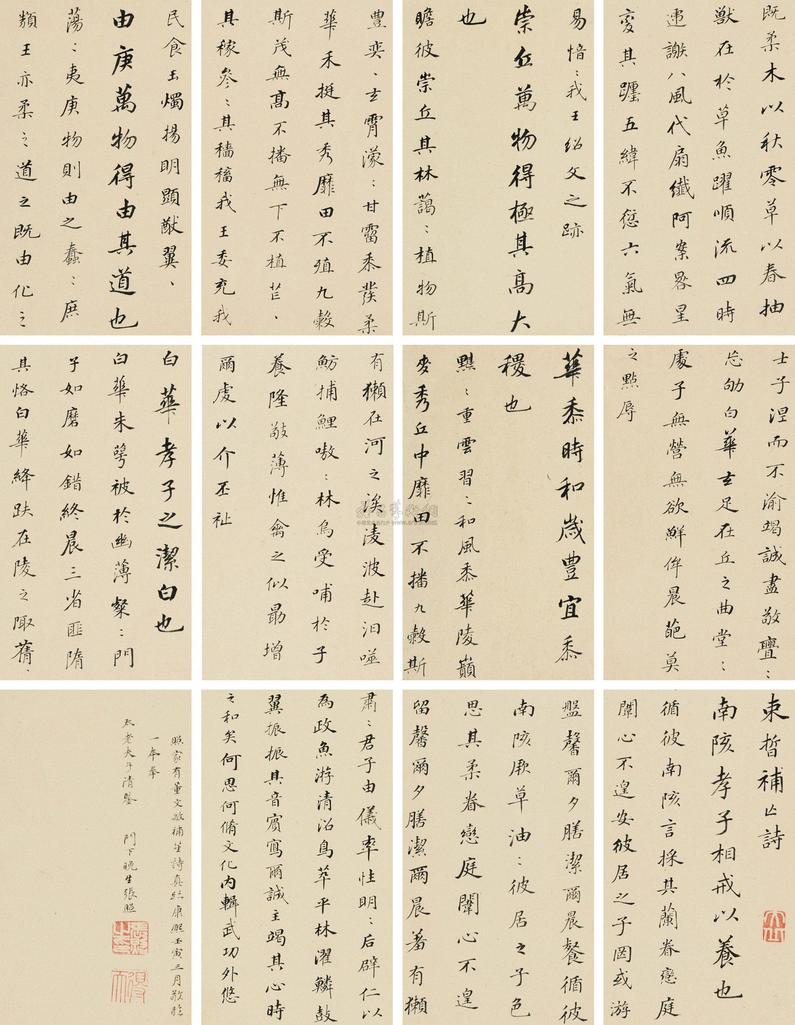 束皙補亡詩
南陔孝子相戒以養也
循彼南陔言採其蘭眷戀庭
闈心不遑安彼居之子罔或游
盤馨爾夕膳潔爾晨餐循彼
南陔厥草油〻彼居之子色
思其柔眷戀庭闈心不遑
留馨爾夕膳潔爾晨羞有獺
有獺在河之涘淩波赴汨噬
魴捕鯉嗷〻林烏受哺於子
養隆敬薄惟禽之似勗增
爾虔以介丕祉
白華孝子之潔白也
白華朱萼被於幽薄粲〻門
子如磨如錯終晨三省匪隋
其恪白華絳趺在陵之陬蒨〻
士子涅而不渝竭誠盡敬亹〻
忘劬白華玄足在丘之曲堂〻
處子無營無欲鮮侔晨葩莫
之點辱
華黍時和歲豐宜黍
稷也
黮〻重雲習〻和風黍華陵巔
麥秀丘中靡田不播九穀斯
豐奕〻玄霄濛〻甘霤黍發柔
華禾挺其秀靡田不殖九穀
斯茂無高不播無下不植芒〻
其稼參〻其穡稸我王委充我
民食玉燭揚明顯猷翼〻
由庚萬物得由其道也
蕩〻夷庚物則由之蠢〻庶
類王亦柔之道之既由化之
既柔木以秋零草以春抽
獸在於草魚躍順流四時
遞謝八風代扇纖阿案晷星
變其躔五緯不愆六氣無
易愔〻我王紹文之跡
崇丘萬物得極其高大
也
瞻彼崇丘其林藹〻植物斯
肅〻君子由儀率性明〻后辟仁以
為政魚游清沼鳥萃平林濯鱗鼓
翼振振其音賓寫爾誠主竭其心時
之和矣何思何脩文化內輯武功外悠
照家有董文敏補笙詩真跡康熙壬寅三月敬臨
一本奉
太老夫子清鑒 門下晚生張照